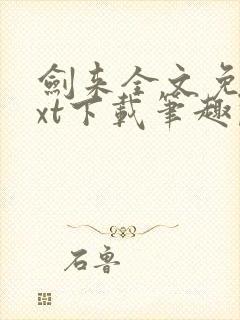 劍来全文免
xt下載筆趣
石魯